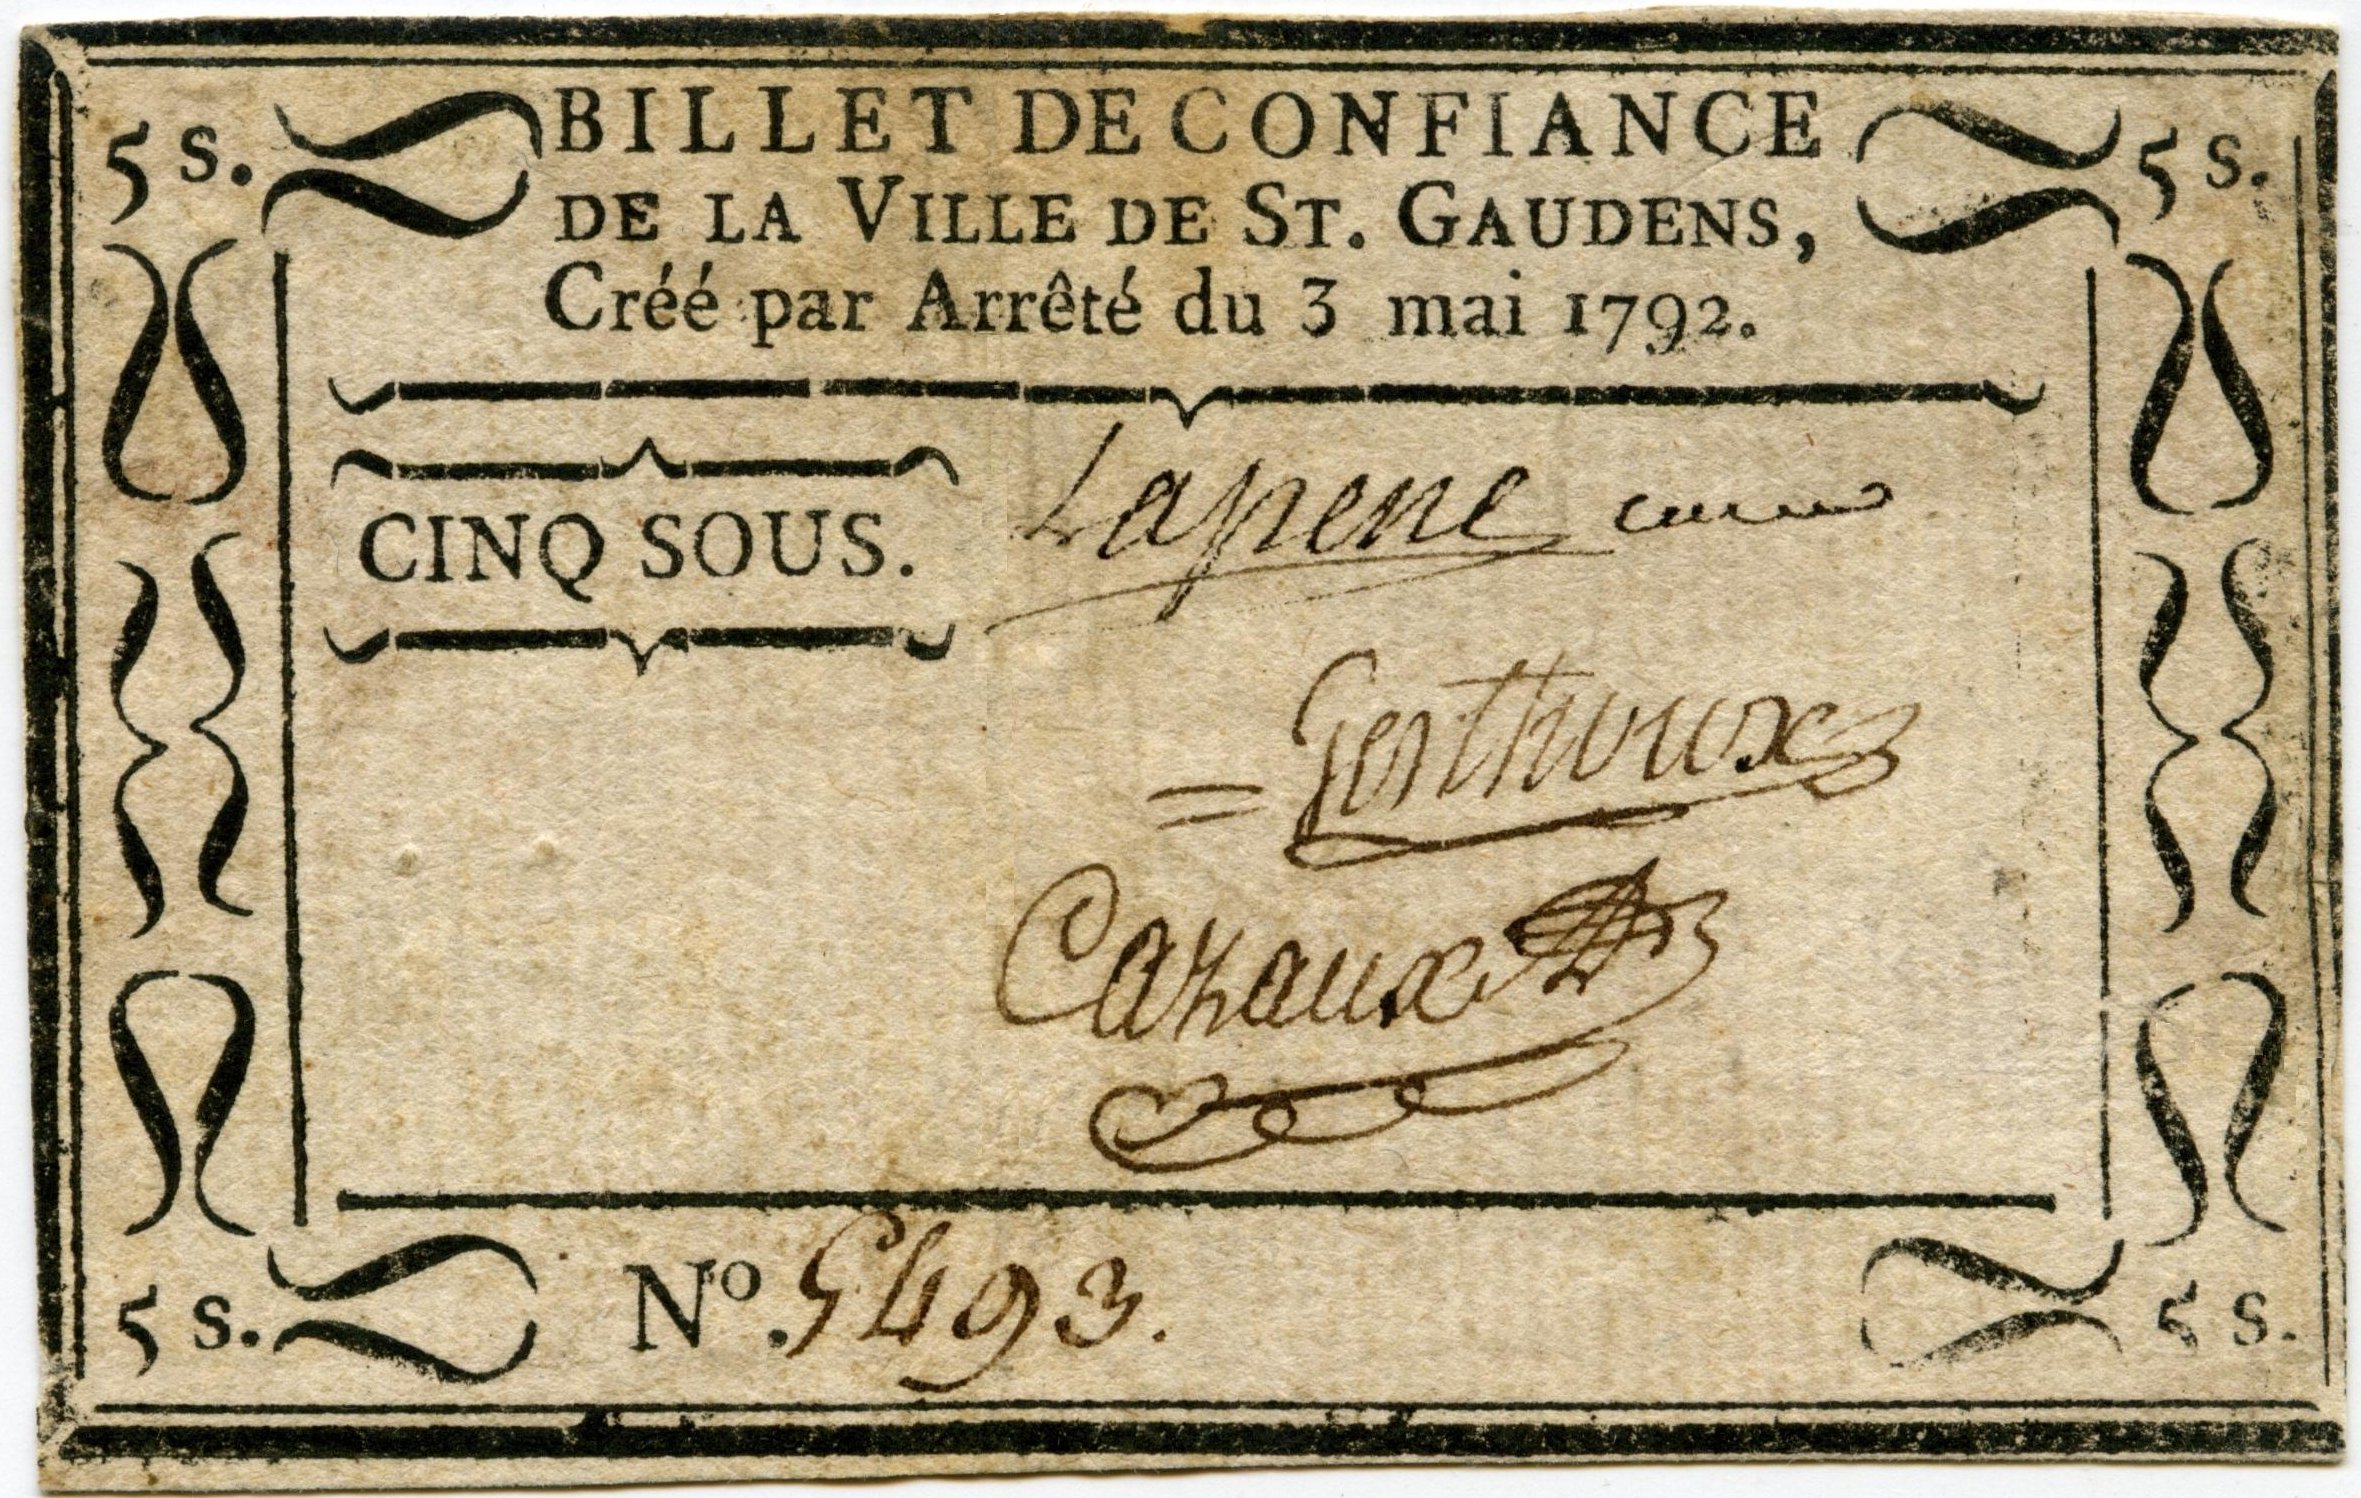 5 s. BILLET DE CONFIANCE 5 s.
DE LA VILLE DE ST. GAUDENS,
Créé par Arrêté du 3 mai 1792.
CINQ SOUS.
Lapene
Cazaux
5 s. Nº. 5493. 5 s.